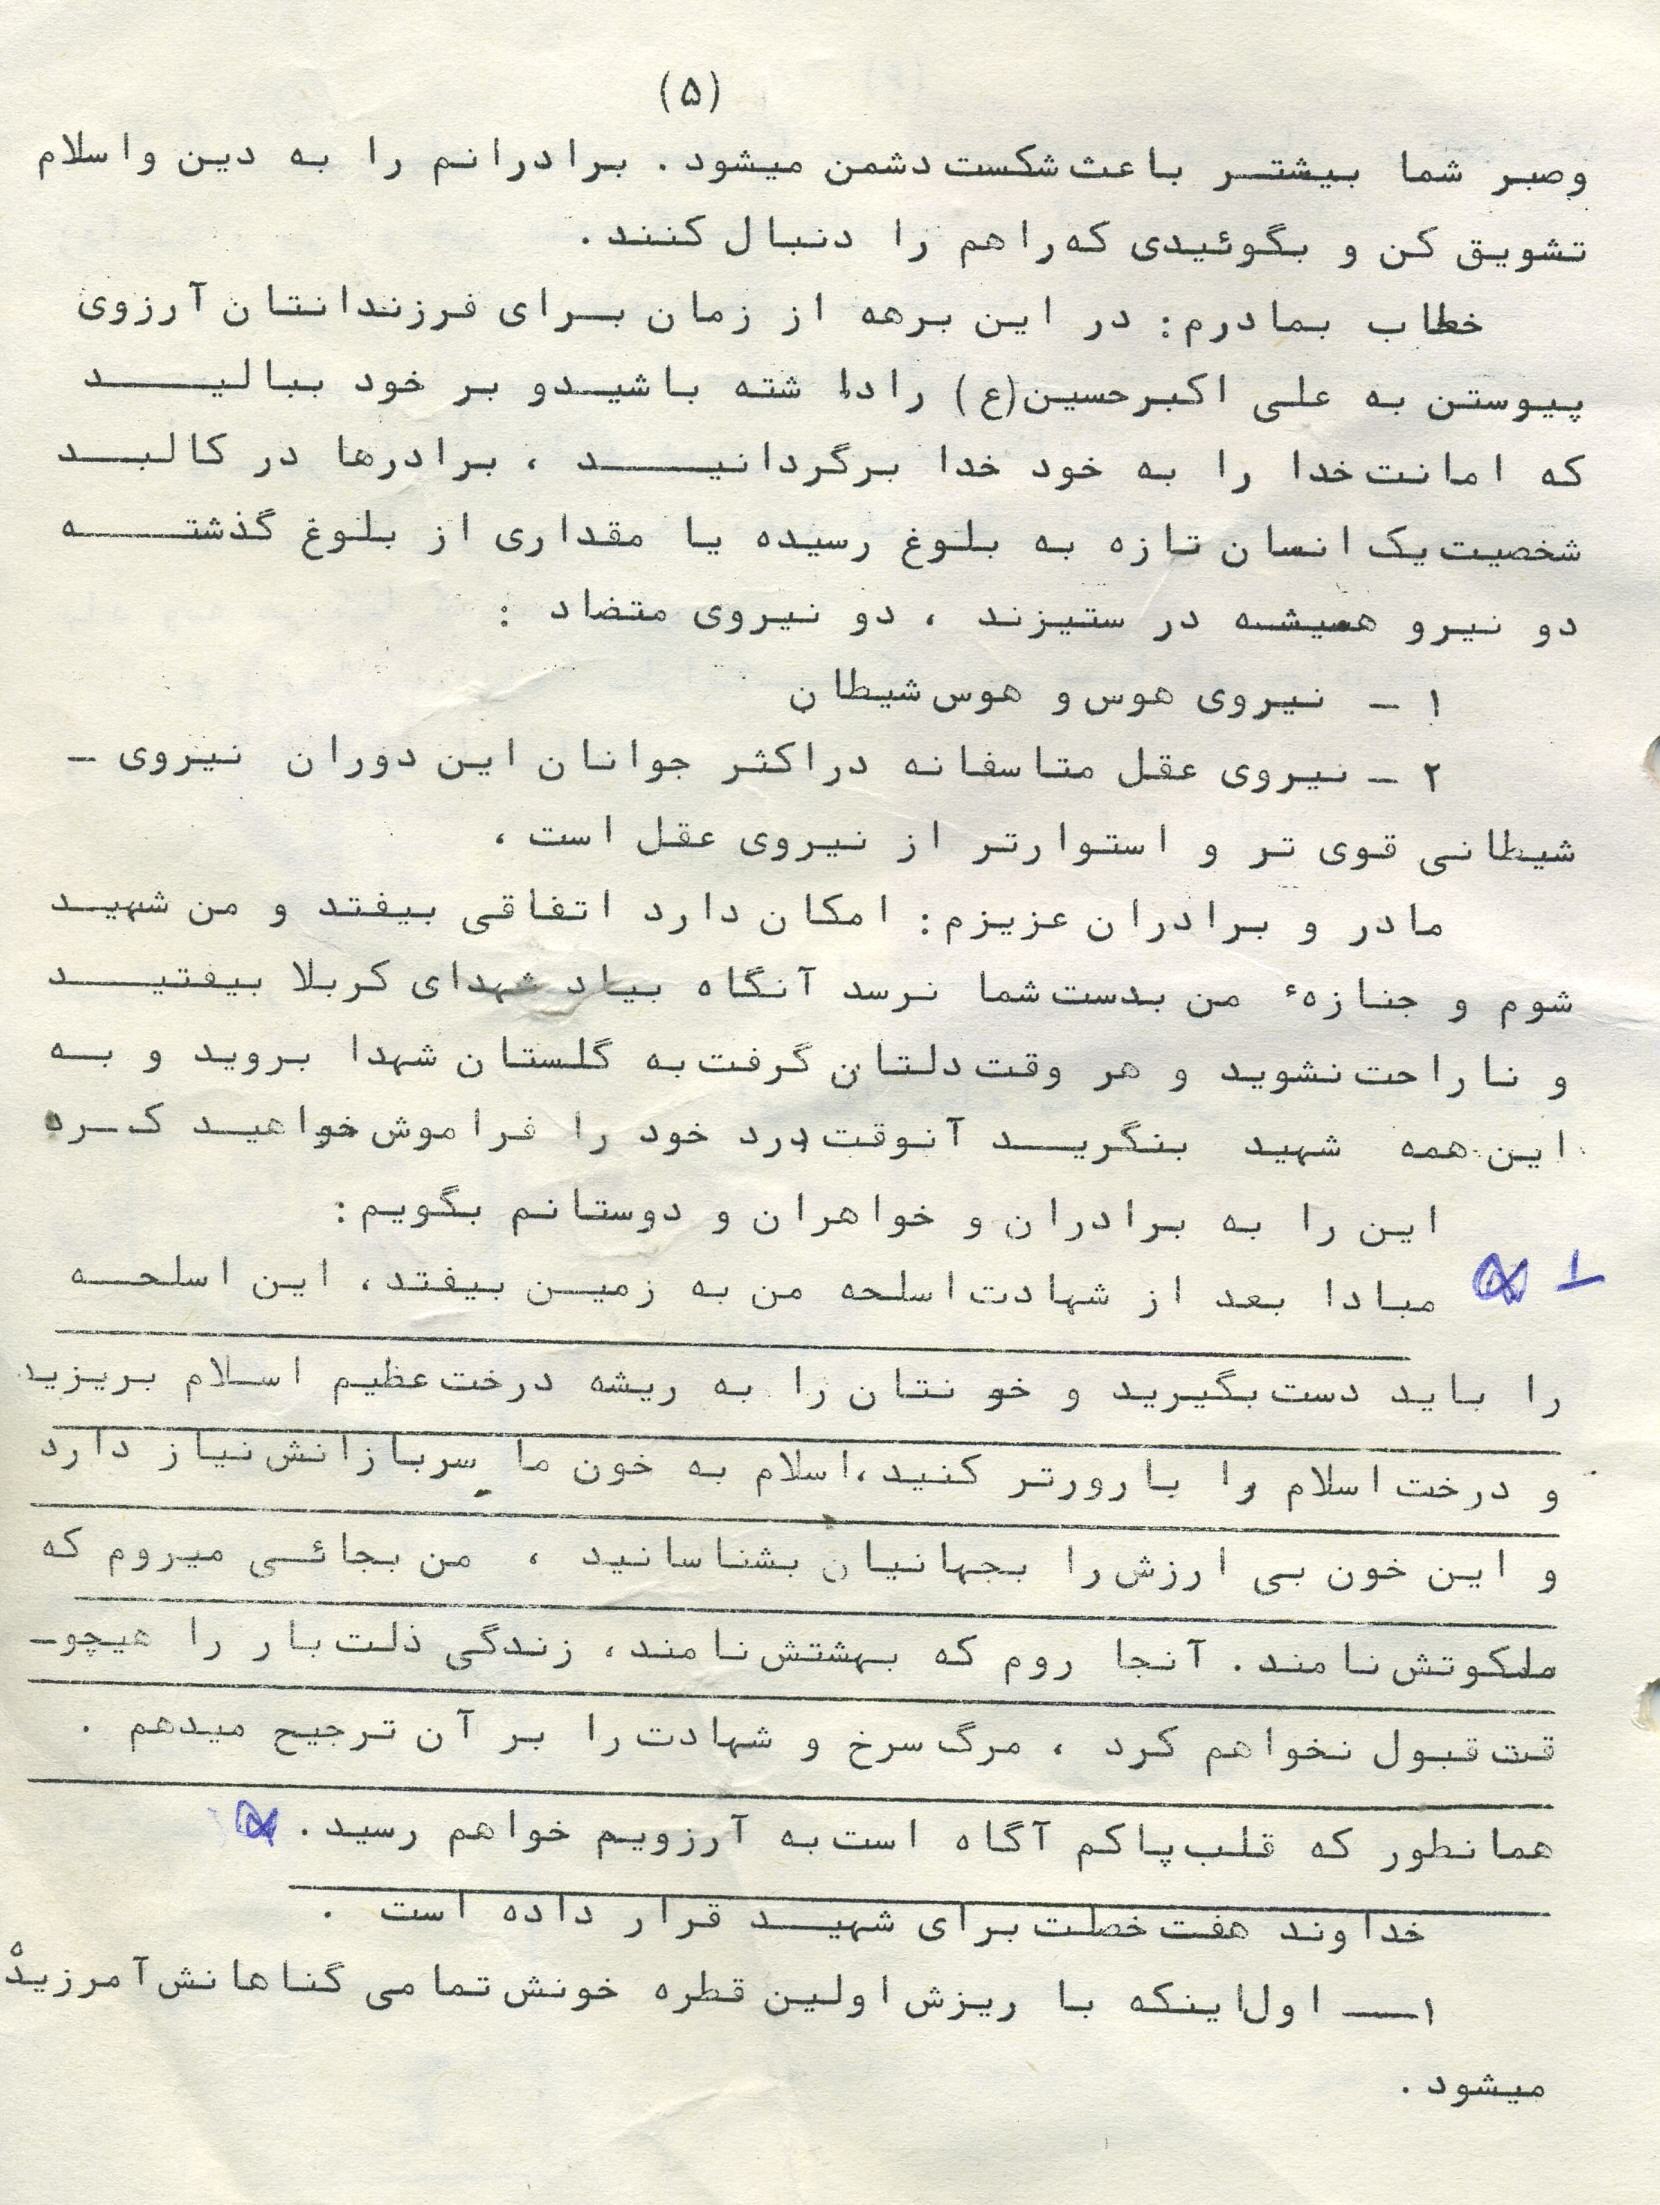 (۵)
وصبر شما بیشتر باعث شکست دشمن میشود. برادرانم را به دین واسلام
تشویق کن و بگوئیدی که راهم را دنبال کنند.
خطاب بمادرم: در این برهه از زمان برای فرزندانتان آرزوی
پیوستن به علی اکبر حسین(ع) را داشته باشیدو بر خود ببالید
که امانت خدا را به خود خدا برگردانید ، برادرها در کالبد
شخصیت یک انسان تازه به بلوغ رسیده یا مقداری از بلوغ گذشته
دو نیرو همیشه در ستیزند ، دو نیروی متضاد :
۱ - نیروی هوس و هوس شیطان
۲ - نیروی عقل متاسفانه دراکثر جوانان این دوران نیروی -
شیطانی قوی تر و استوارتر از نیروی عقل است ،
مادر و برادران عزیزم: امکان دارد اتفاقی بیفتد و من شهید
شوم و جنازهٔ من بدست شما نرسد آنگاه بیاد شهدای کربلا بیفتید
و ناراحت نشوید و هر وقت دلتان گرفت به گلستان شهدا بروید و به
این همه شهید بنگرید آنوقت درد خود را فراموش خواهید کرد
این را به برادران و خواهران و دوستانم بگویم:
مبادا بعد از شهادت اسلحه من به زمین بیفتد، این اسلحه
را باید دست بگیرید و خونتان را به ریشه درخت عظیم اسلام بریزید
و درخت اسلام را بارورتر کنید،اسلام به خون ما سربازانش نیاز دارد
و این خون بی ارزش را بجهانیان بشناسانید ، من بجائی میروم که
ملکوتش نامند. آنجا روم که بهشتش نامند، زندگی ذلت بار را هیچو-
قت قبول نخواهم کرد ، مرگ سرخ و شهادت را بر آن ترجیح میدهم .
همانطور که قلب پاکم آگاه است به آرزویم خواهم رسید.
خداوند هفت خصلت برای شهید قرار داده است .
۱- اول اینکه با ریزش اولین قطره خونش تمامی گناهانش آمرزیده
میشود.